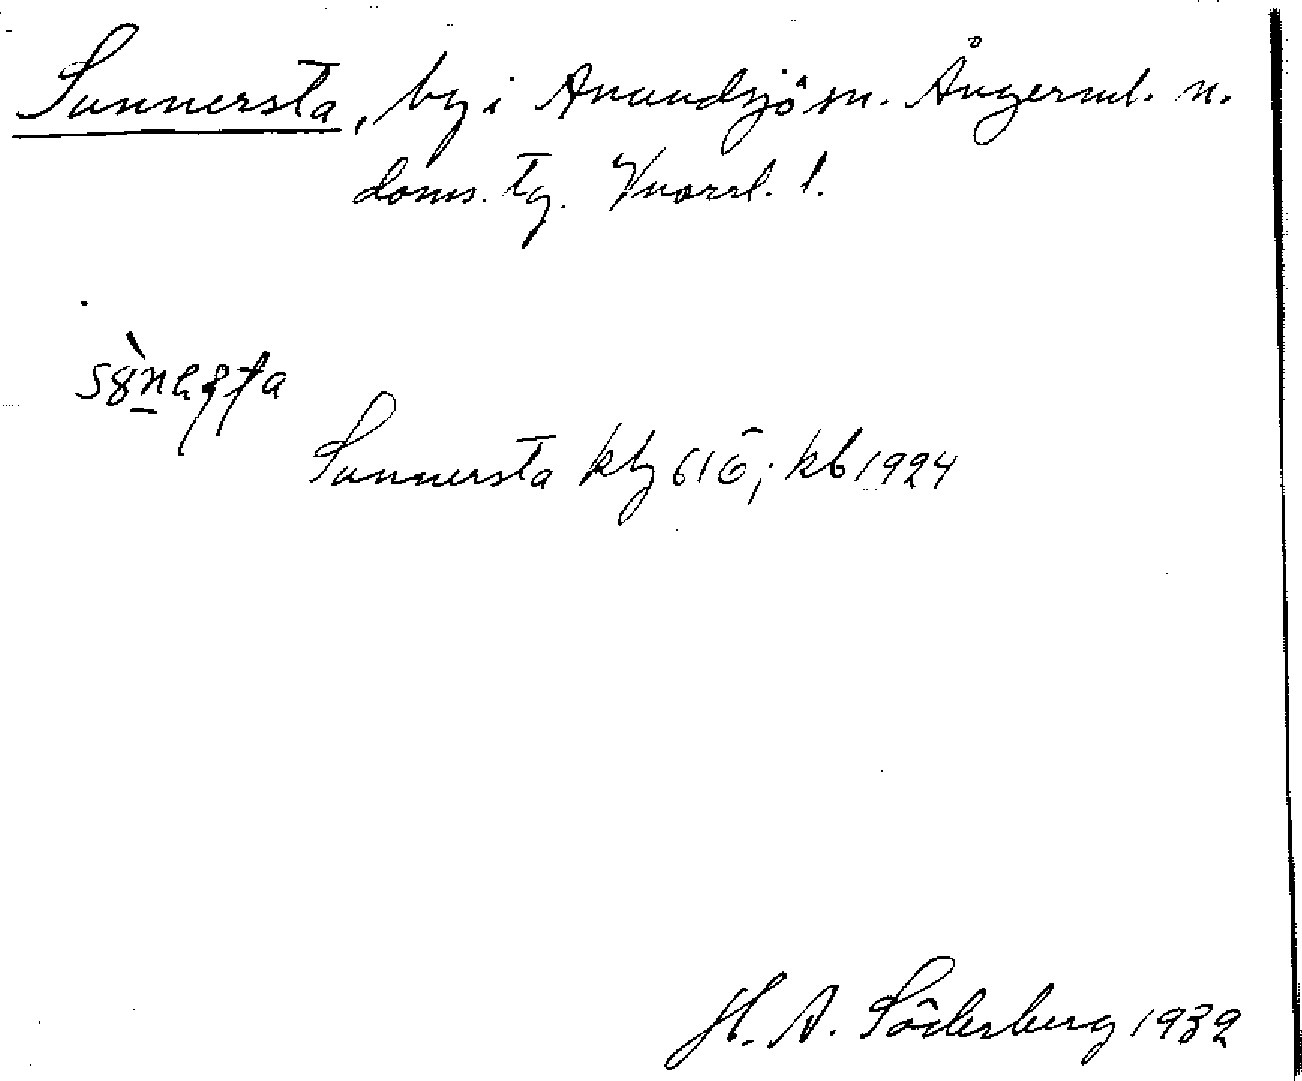 Sunnersta, by i Anundsjö sn. Ångerml. n.
doms. tg. Vnorrl. l.
Sunnersta kbg 616; kb 1924
H. A. Söderberg 1932